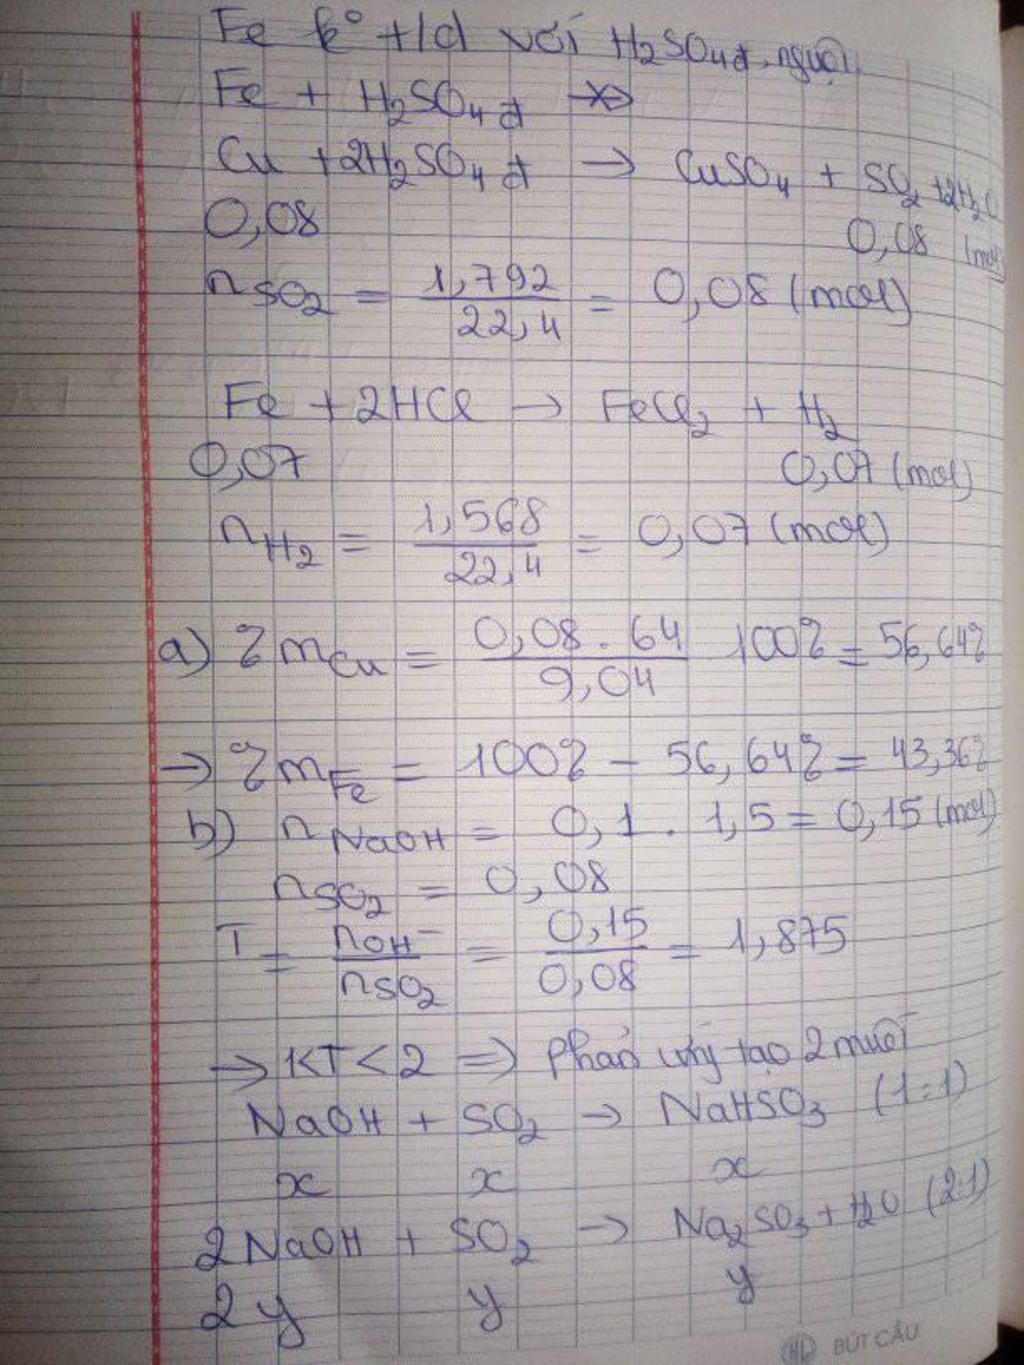 Fe k° t/d với H₂SO₄đ, nguội
Fe + H₂SO₄đ ↛
Cu + 2H₂SO₄đ → CuSO₄ + SO₂ + 2H₂O
0,08 0,08 (mol)
nSO₂ = 1,792/22,4 = 0,08 (mol)
Fe + 2HCl → FeCl₂ + H₂
0,07 0,07 (mol)
nH₂ = 1,568/22,4 = 0,07 (mol)
a) %mCu = 0,08 . 64/9,04 100% = 56,64%
→ %mFe = 100% - 56,64% = 43,36%
b) nNaOH = 0,1 . 1,5 = 0,15 (mol)
nSO₂ = 0,08
T = nOH⁻/nSO₂ = 0,15/0,08 = 1,875
→ 1<T<2 => phản ứng tạo 2 muối
NaOH + SO₂ → NaHSO₃ (1:1)
x x x
2NaOH + SO₂ → Na₂SO₃ + H₂O (2:1)
2y y y
BÚT CẦU